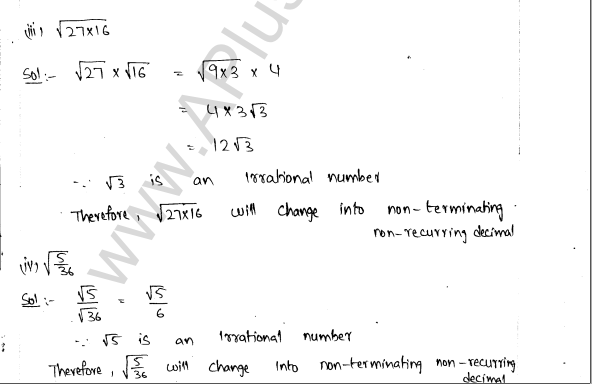 (iii) √27×16
Sol:- √27 × √16 = √9×3 × 4
= 4×3√3
= 12√3
∵ √3 is an Irrational number
Therefore, √27×16 will change into non-terminating
non-recurring decimal
(iv) √5/36
Sol:- √5/√36 = √5/6
∵ √5 is an Irrational number
Therefore, √5/36 will change into non-terminating non-recurring
decimal
www.APlus